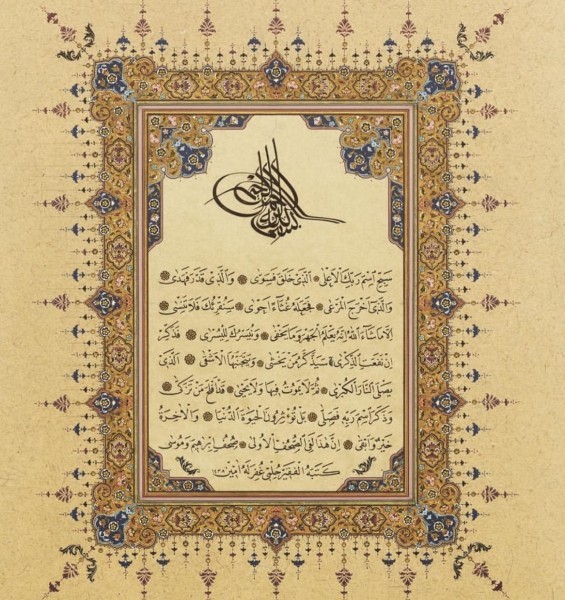 بسم الله الرحمن الرحيم
سَبِّحِ اسْمَ رَبِّكَ الْاَعْلٰى الَّذٖى خَلَقَ فَسَوّٰى وَالَّذٖى قَدَّرَ فَهَدٰى
وَالَّذٖى اَخْرَجَ الْمَرْعٰى فَجَعَلَهُ غُثَٓاءً اَحْوٰى سَنُقْرِئُكَ فَلَا تَنْسٰى
اِلَّا مَا شَٓاءَ اللّٰهُ اِنَّهُ يَعْلَمُ الْجَهْرَ وَمَا يَخْفٰى وَنُيَسِّرُكَ لِلْيُسْرٰى فَذَكِّرْ
اِنْ نَفَعَتِ الذِّكْرٰى سَيَذَّكَّرُ مَنْ يَخْشٰى وَيَتَجَنَّبُهَا الْاَشْقٰى الَّذٖى
يَصْلَى النَّارَ الْكُبْرٰى ثُمَّ لَا يَمُوتُ فٖيهَا وَلَا يَحْيٰى قَدْ اَفْلَحَ مَنْ تَزَكّٰى
وَذَكَرَ اسْمَ رَبِّهٖ فَصَلّٰى بَلْ تُؤْثِرُونَ الْحَيٰوةَ الدُّنْيَا وَالْاٰخِرَةُ
خَيْرٌ وَاَبْقٰى اِنَّ هٰذَا لَفِى الصُّحُفِ الْاُولٰى صُحُفِ اِبْرٰهٖيمَ وَمُوسٰى
كَتَبَهُ الْفَقٖيرُ حِلْمٖى غُفِرَ لَهُ اٰمٖينَ